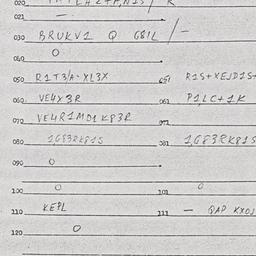 020
021 —
030 BRUKV1 Q G8IL / —
O
040
050 R1T3A-XL3X 051 R1S+XEJD1S+
060 VE4Y3R 061 P1LC+1K
070 VE4R1MD1K83R 071
080 1G83RK81S 081 1G83RK81S
090 O
100 O 101 O
110 KEPL 111 — QAP KXOJ
120 O